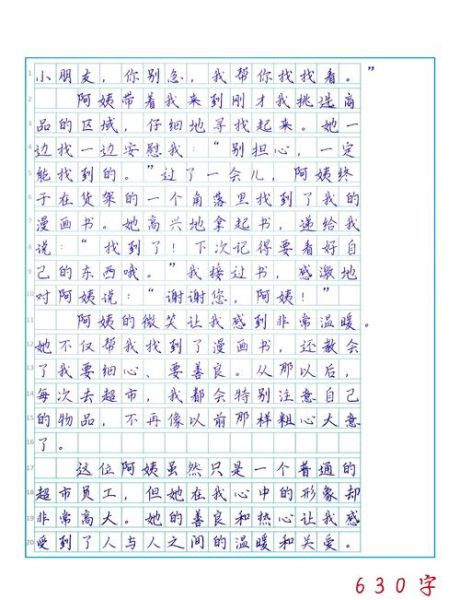 小朋友，你别急，我帮你找找看。”
阿姨带着我来到刚才我挑选商
品的区域，仔细地寻找起来。她一
边找一边安慰我：“别担心，一定
能找到的。”过了一会儿，阿姨终
于在货架的一个角落里找到了我的
漫画书。她高兴地拿起书，递给我
说：“找到了！下次记得要看好自
己的东西哦。”我接过书，感激地
对阿姨说：“谢谢您，阿姨！”
阿姨的微笑让我感到非常温暖。
她不仅帮我找到了漫画书，还教会
了我要细心、要善良。从那以后，
每次去超市，我都会特别注意自己
的物品，不再像以前那样粗心大意
了。
这位阿姨虽然只是一个普通的
超市员工，但她在我心中的形象却
非常高大。她的善良和热心让我感
受到了人与人之间的温暖和关爱。
630字